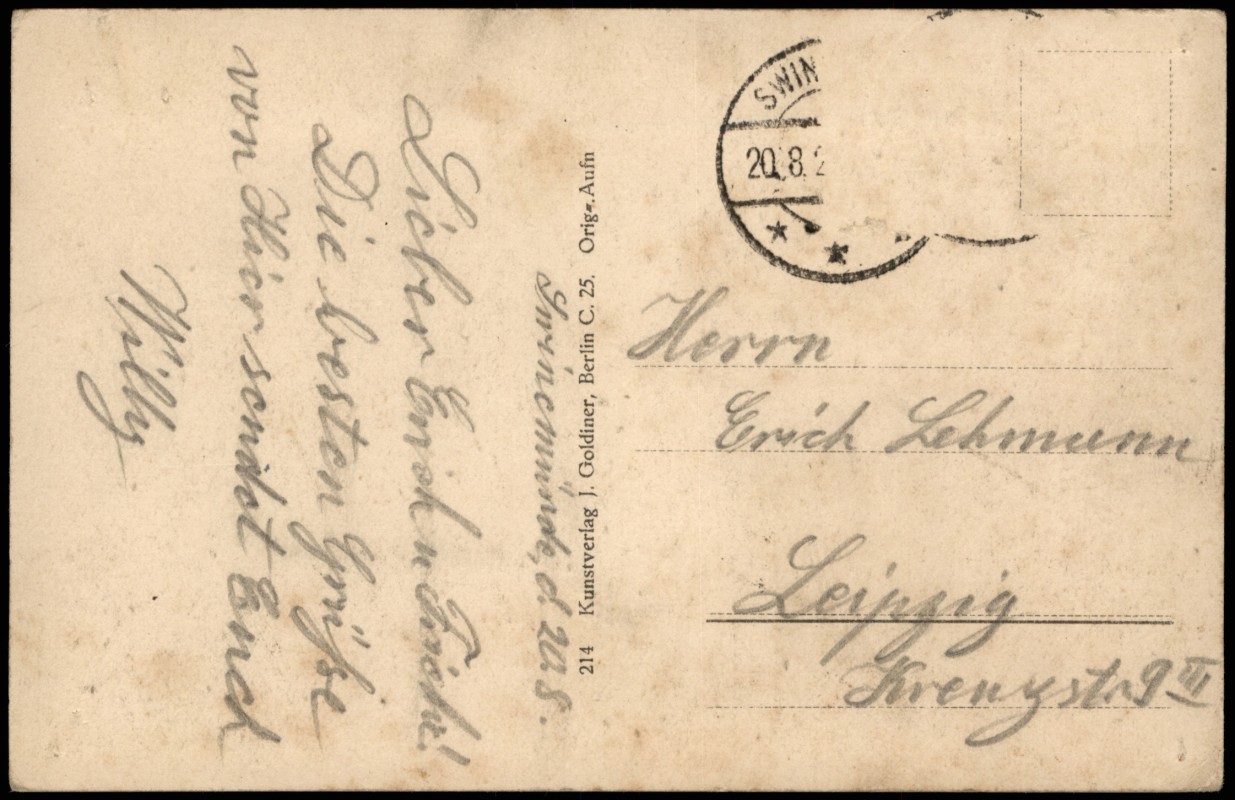 Swinemünde, d. 20.8.
Lieber Erich u. Trichi!
Die besten Grüße
von Hier sendet Euch
Willy
214 Kunstverlag J. Goldiner, Berlin C. 25. Orig.-Aufn
SWIN
20.8.2
Herrn
Erich Lehmann
Leipzig
Kreuzstr. 9 III